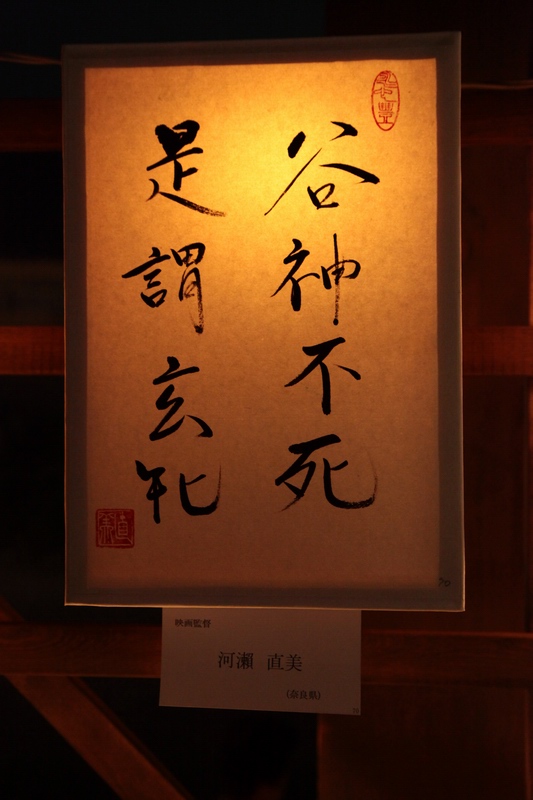 谷神不死
是謂玄牝
映画監督
河瀨 直美
(奈良県)